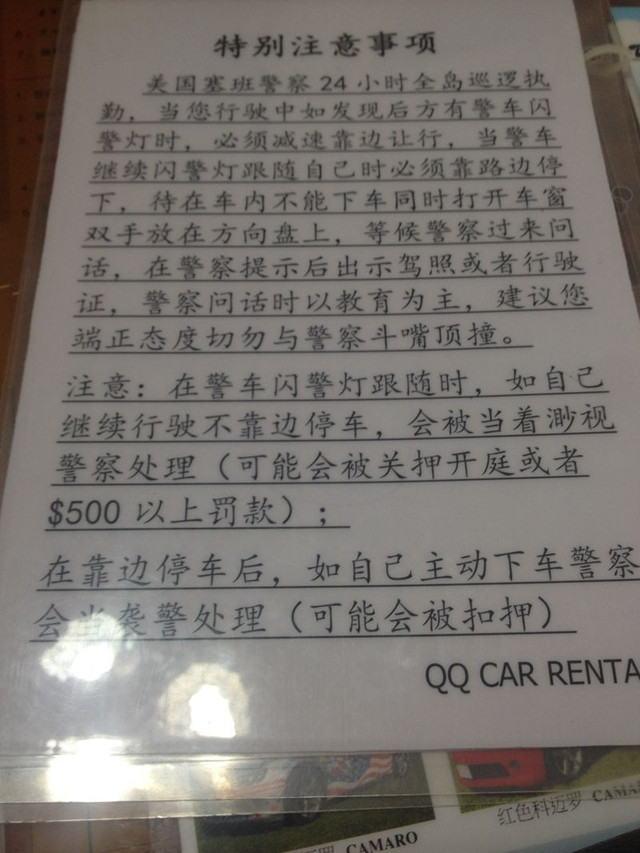 特别注意事项
美国塞班警察24小时全岛巡逻执
勤，当您行驶中如发现后方有警车闪
警灯时，必须减速靠边让行，当警车
继续闪警灯跟随自己时必须靠路边停
下，待在车内不能下车同时打开车窗
双手放在方向盘上，等候警察过来问
话，在警察提示后出示驾照或者行驶
证，警察问话时以教育为主，建议您
端正态度切勿与警察斗嘴顶撞。
注意：在警车闪警灯跟随时，如自己
继续行驶不靠边停车，会被当着渺视
警察处理（可能会被关押开庭或者
$500 以上罚款）；
在靠边停车后，如自己主动下车警察
会当袭警处理（可能会被扣押）
QQ CAR RENTA
CAMARO
红色科迈罗 CAMA